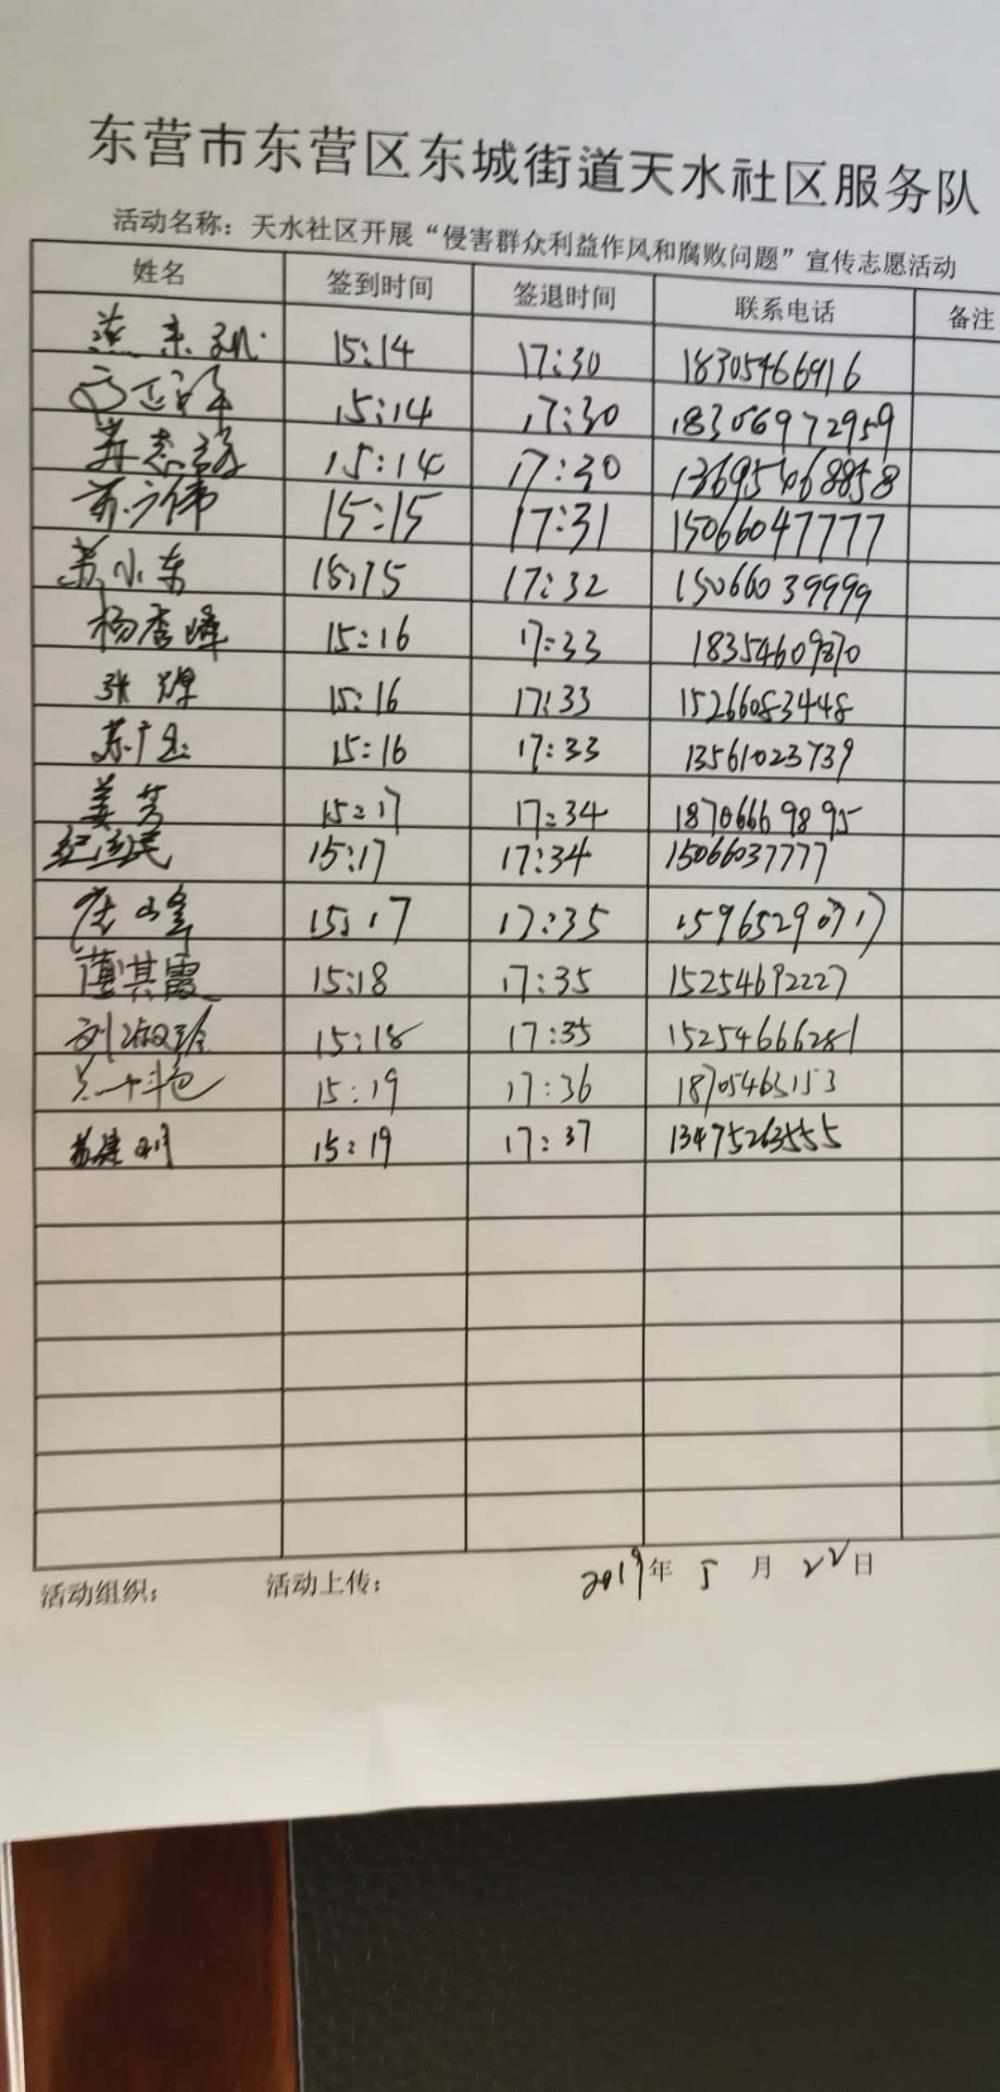 东营市东营区东城街道天水社区服务队
活动名称：天水社区开展“侵害群众利益作风和腐败问题”宣传志愿活动
姓名 签到时间 签退时间 联系电话 备注
15:14 17:30 18305466916
15:14 17:30 18306972959
苏志 15:14 17:30
苏广伟 15:15 17:31 15066047777
苏小东 15:15 17:32 15066039999
杨秀峰 15:16 17:33
张辉 15:16 17:33 15266083448
苏广 15:16 17:33 13561023739
姜芳 15:17 17:34 18706669895
纪 民 15:17 17:34 15066037777
山峰 15:17 17:35 15965290717
薄其霞 15:18 17:35 15254692227
刘淑玲 15:18 17:35 15254666281
15:19 17:36 18705463153
苏建明 15:19 17:37 13475263555
活动组织： 活动上传： 2019年 5 月 22日